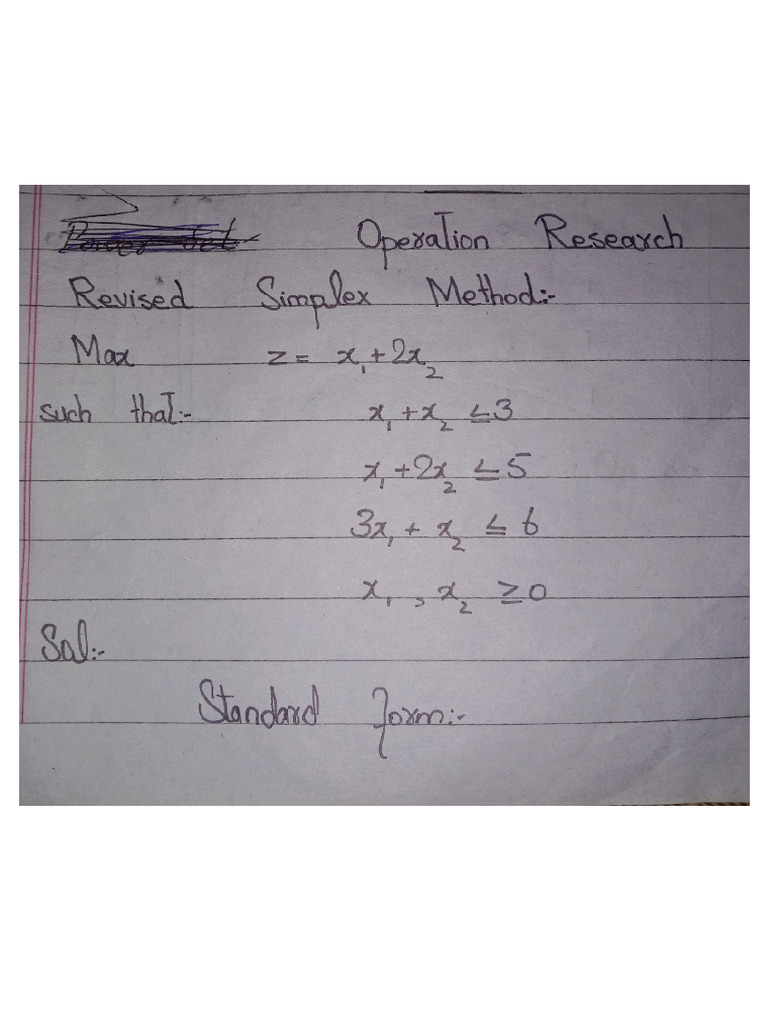 Operation Research
Revised Simplex Method:-
Max z = x₁ + 2x₂
such that:- x₁ + x₂ ≤ 3
x₁ + 2x₂ ≤ 5
3x₁ + x₂ ≤ 6
x₁ , x₂ ≥ 0
Sol:-
Standard form:-